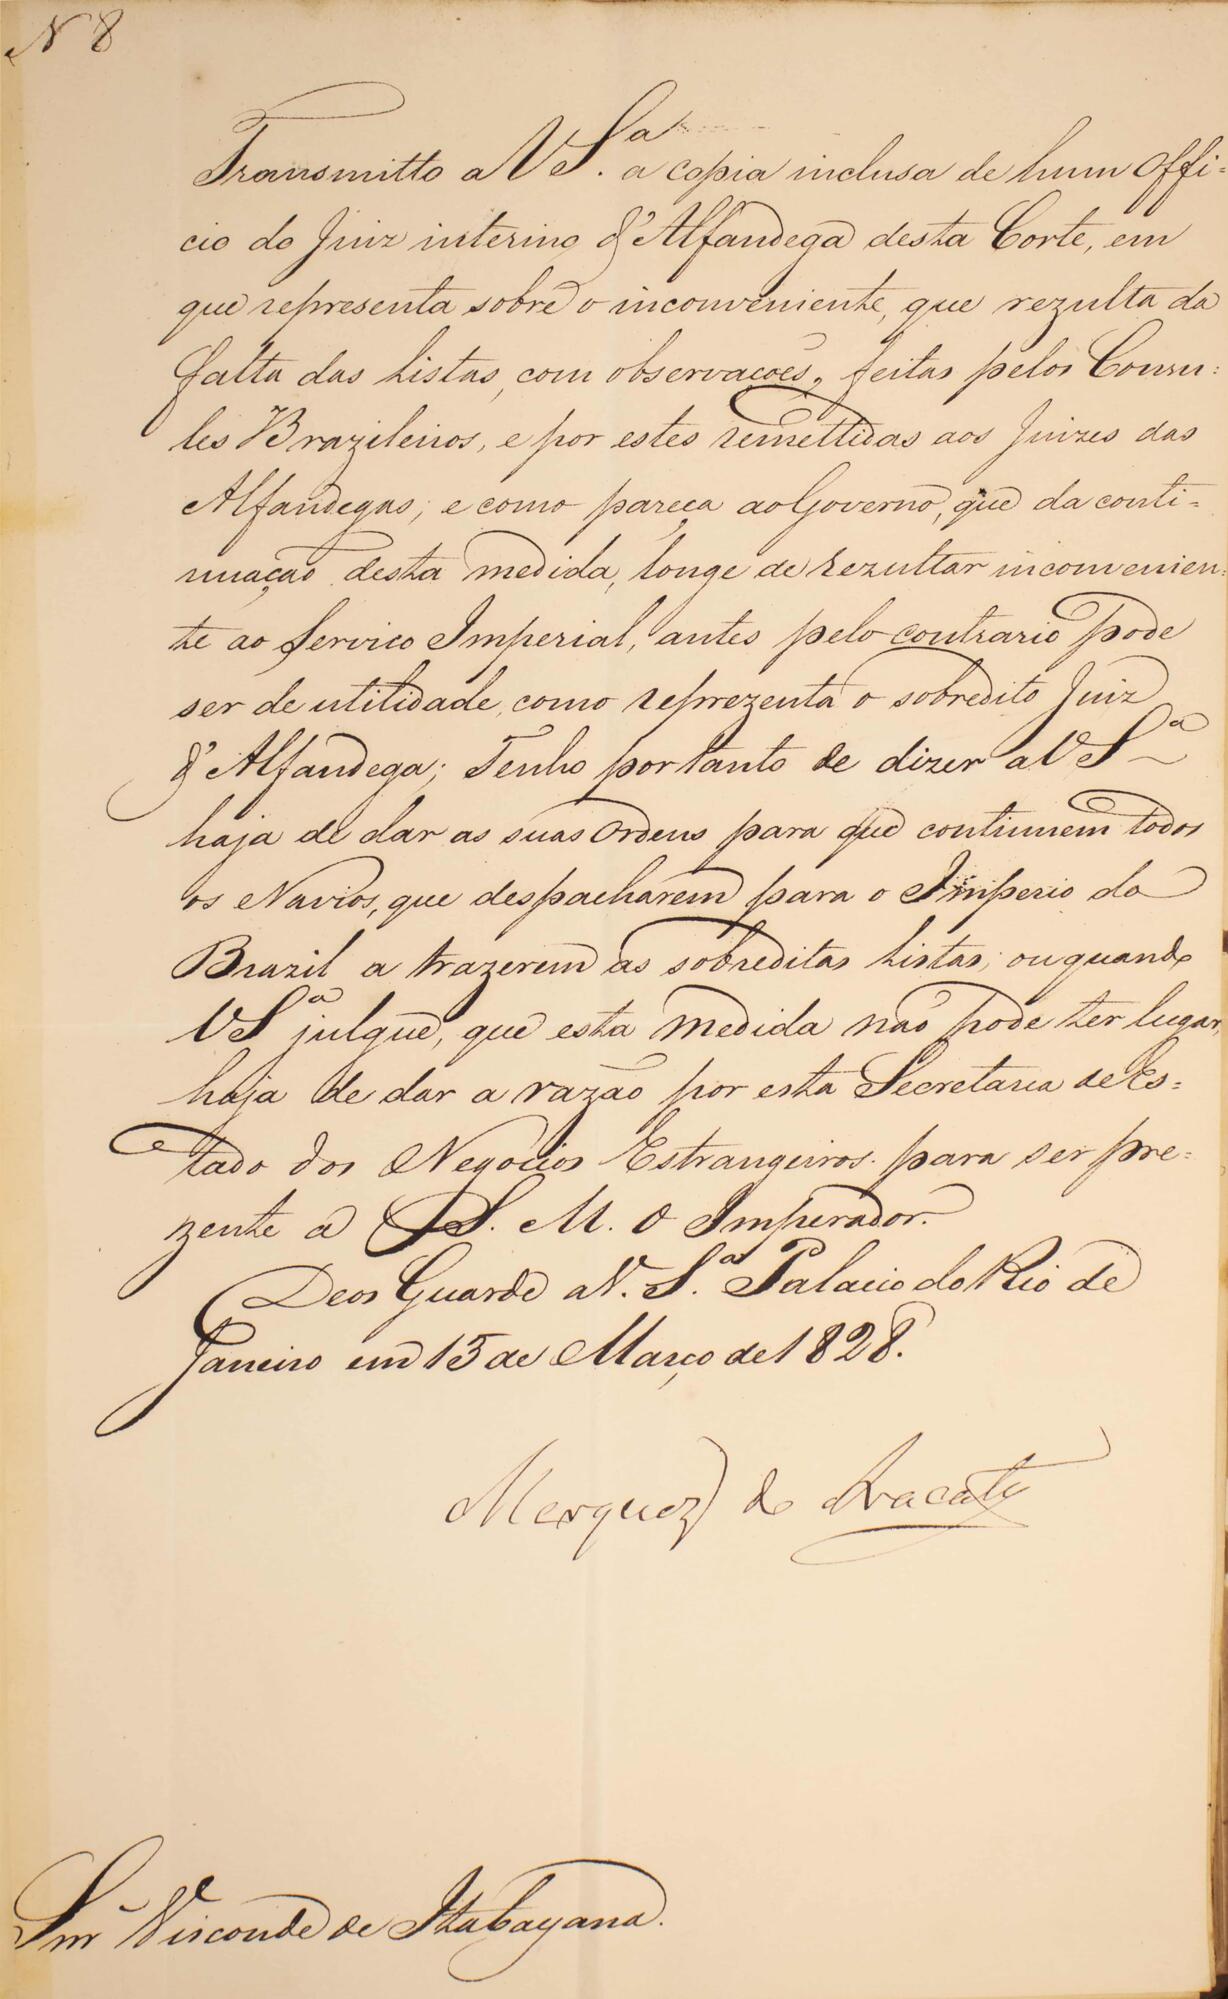 N 8
Transmitto a V S.ª a copia inclusa de hum Offi-
cio do Juiz interino d'Alfandega desta Corte, em
que representa sobre o inconveniente, que rezulta da
falta das Listas, com observações, feitas pelos Consu-
les Brazileiros, e por estes remettidas aos Juizes das
Alfandegas; e como pareça ao Governo, que da conti-
nuação desta medida, longe de rezultar inconvenien-
te ao Serviço Imperial, antes pelo contrario pode
ser de utilidade, como reprezenta o sobredito Juiz
d'Alfandega; Tenho portanto de dizer a V Sª
haja de dar as suas Ordens para que continuem todos
os Navios, que despacharem para o Imperio do
Brazil a trazerem as sobreditas Listas; ou quando
V Sª julgue, que esta medida não pode ter lugar,
haja de dar a razão por esta Secretaria de Es-
tado dos Negocios Estrangeiros para ser pre-
zente a S. M. O Imperador.
Deos Guarde a V. S.ª Palacio do Rio de
Janeiro em 15 de Março de 1828.
Marquez de Aracaty
Snr Visconde de Itabayana.